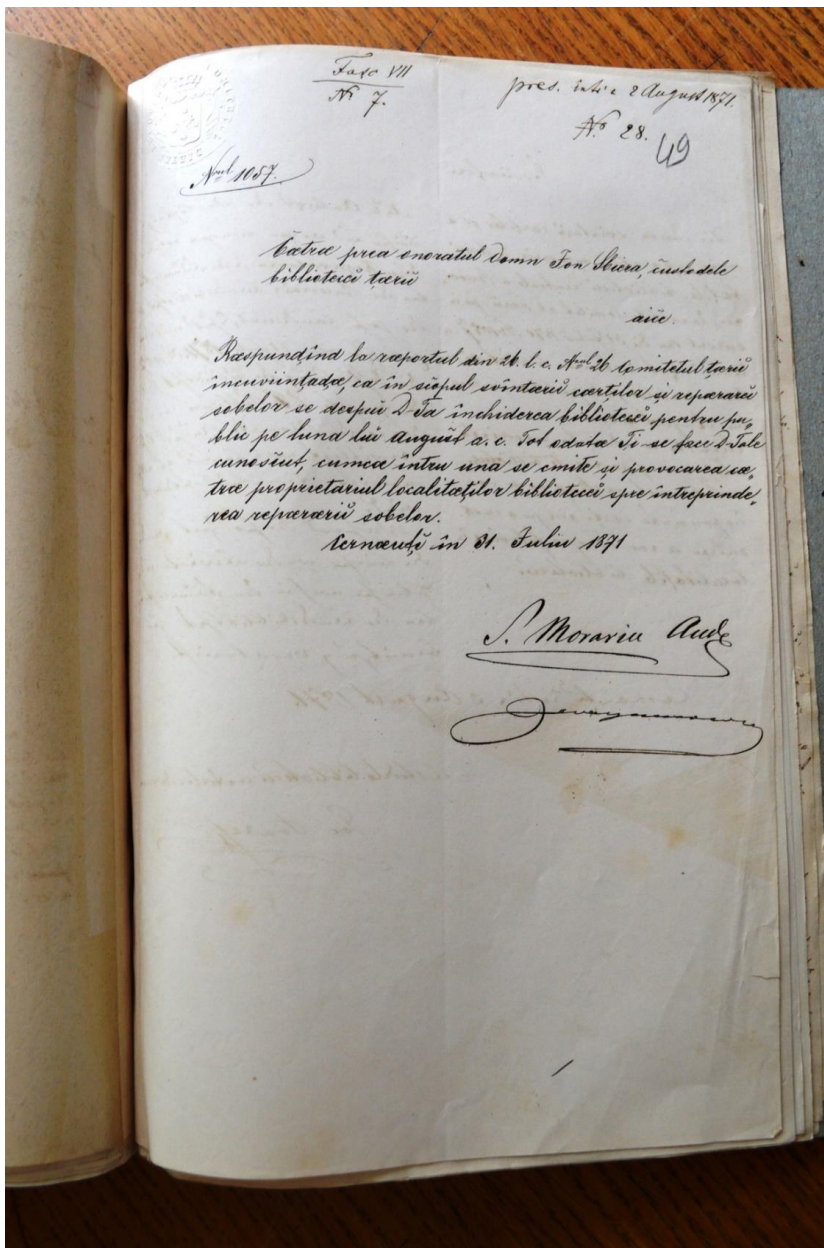 Fasc VII
N: 7.
pres. 2 August 1871.
No 28.
49
Nrul 1057.
Cætræ prea onoratul Domn Ion Sbiera, custodele
bibliotecei tærii
aice.
Ræspundînd la ræportul din 26. l. c. Nrul 26 Comitetul tærii
incuviintadæ, ca în scopul svîntærii cærților și repærærii
sobelor se despui D-Ta închiderea bibliotecei pentru pu„
blic pe luna lui August a. c. Tot odatæ Ti-se face D-Tale
cunoscut, cumcæ întru una se emite și provocarea cæ„
træ proprietariul localitæților bibliotecei spre întreprinde„
rea repærærii sobelor.
Cernæuți în 31. Iuliu 1871
S. Morariu And